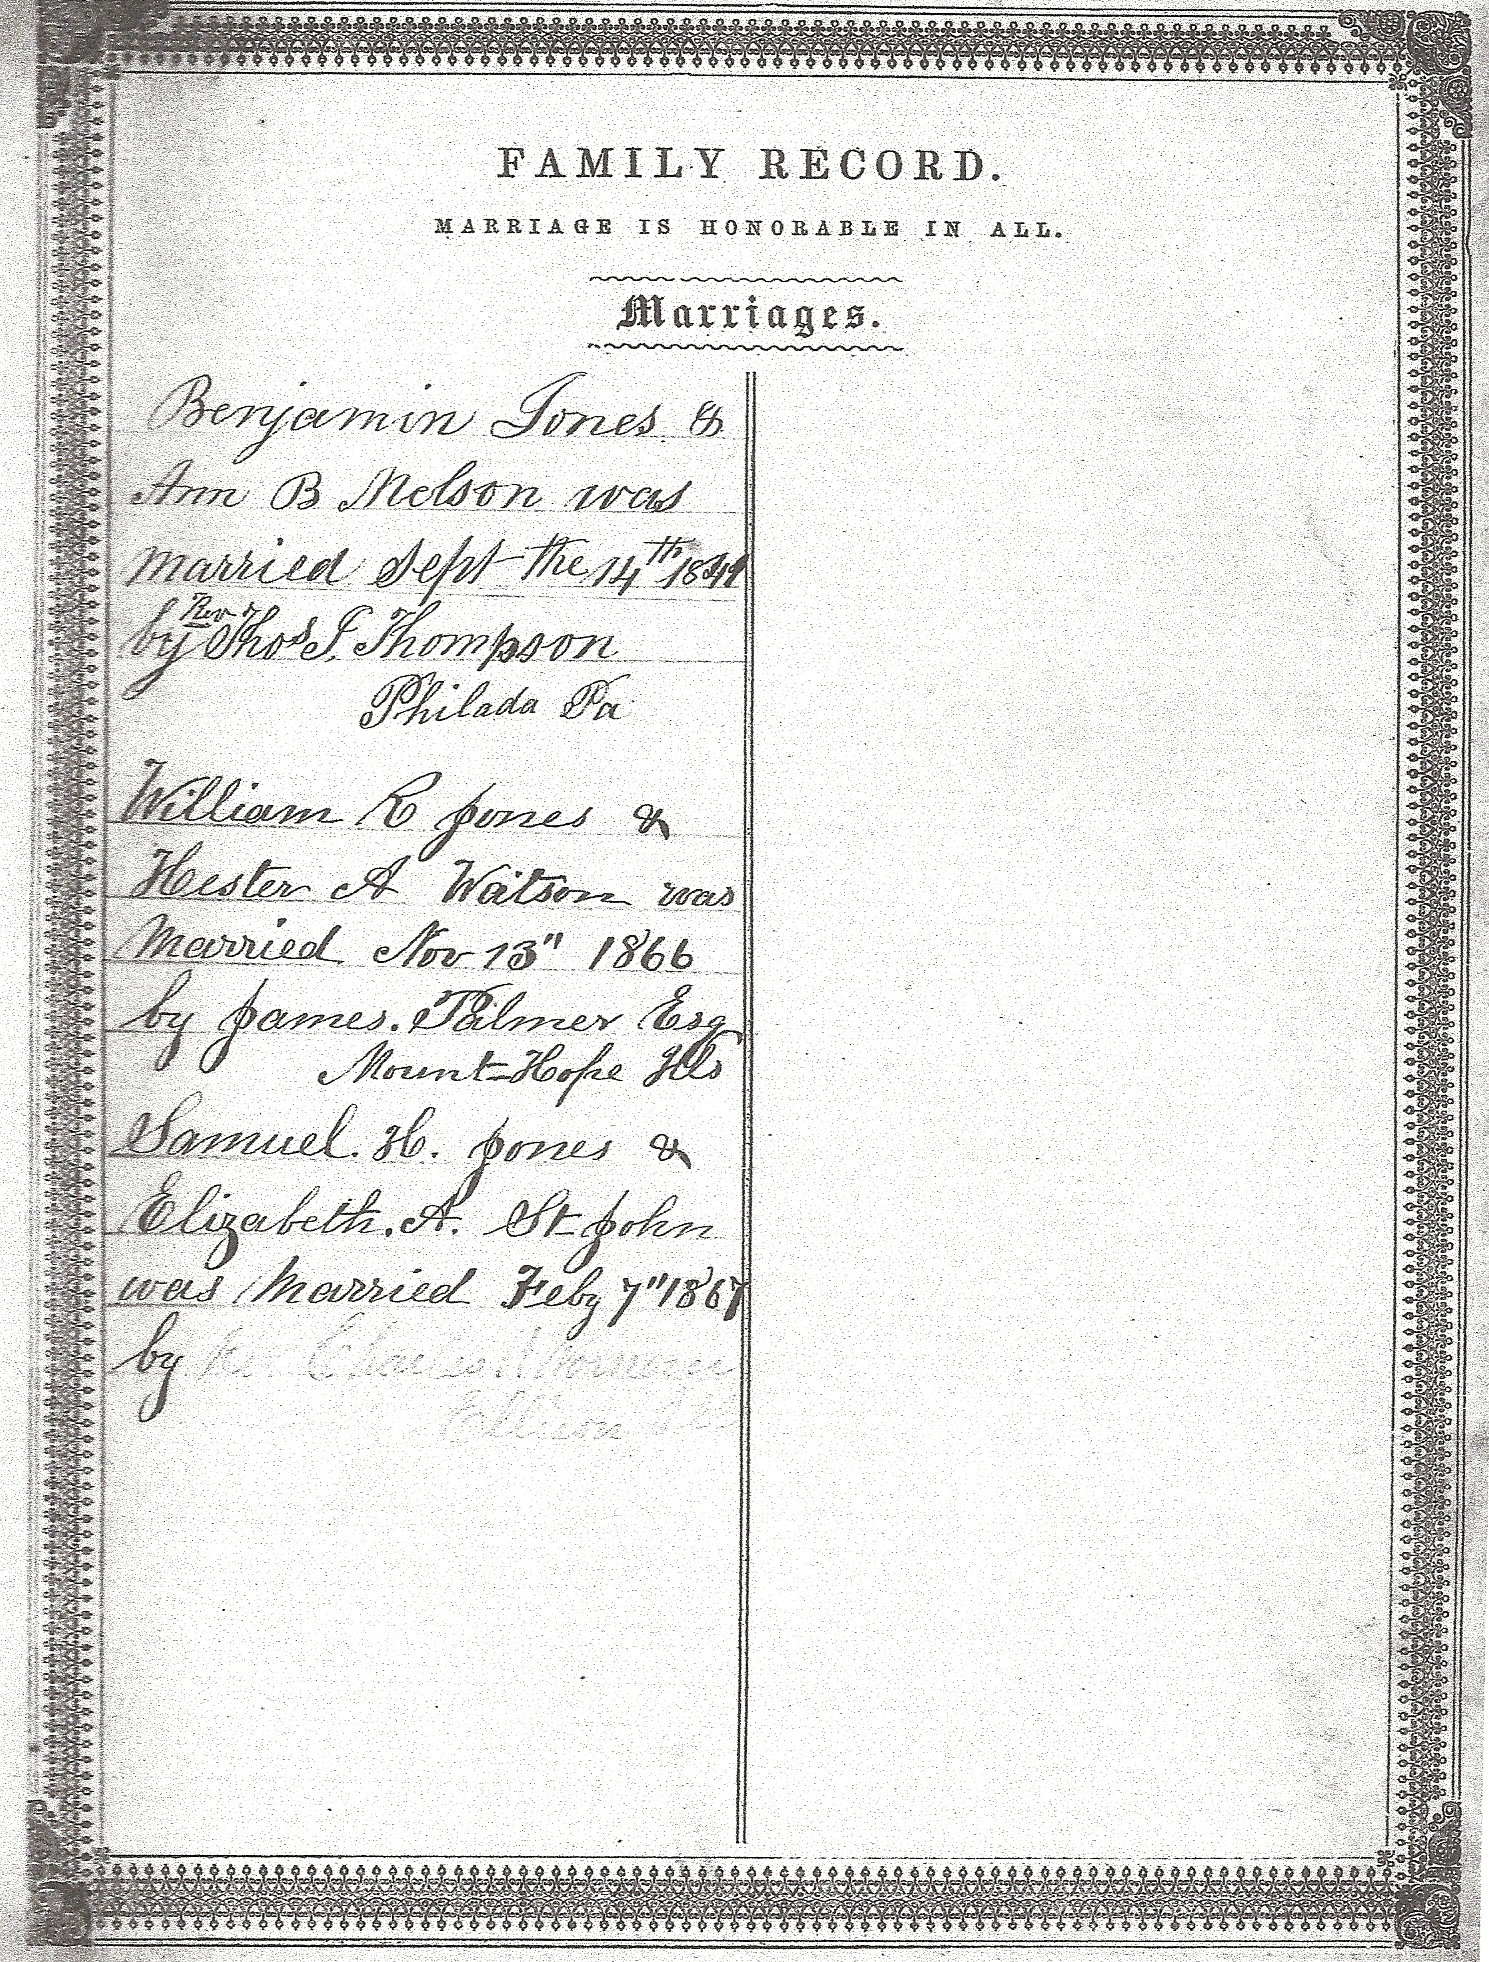 FAMILY RECORD.
MARRIAGE IS HONORABLE IN ALL.
Marriages.
Benjamin Jones &
Ann B Melson was
married Sept the 14th 1841
by Rev Thos J. Thompson
Philada Pa
William R Jones &
Hester A Watson was
Married Nov 13" 1866
by James. Palmer Esq
Mount Hope Ills
Samuel. H. Jones &
Elizabeth. A. St John
was Married Feby 7" 1867
by Rev Charles